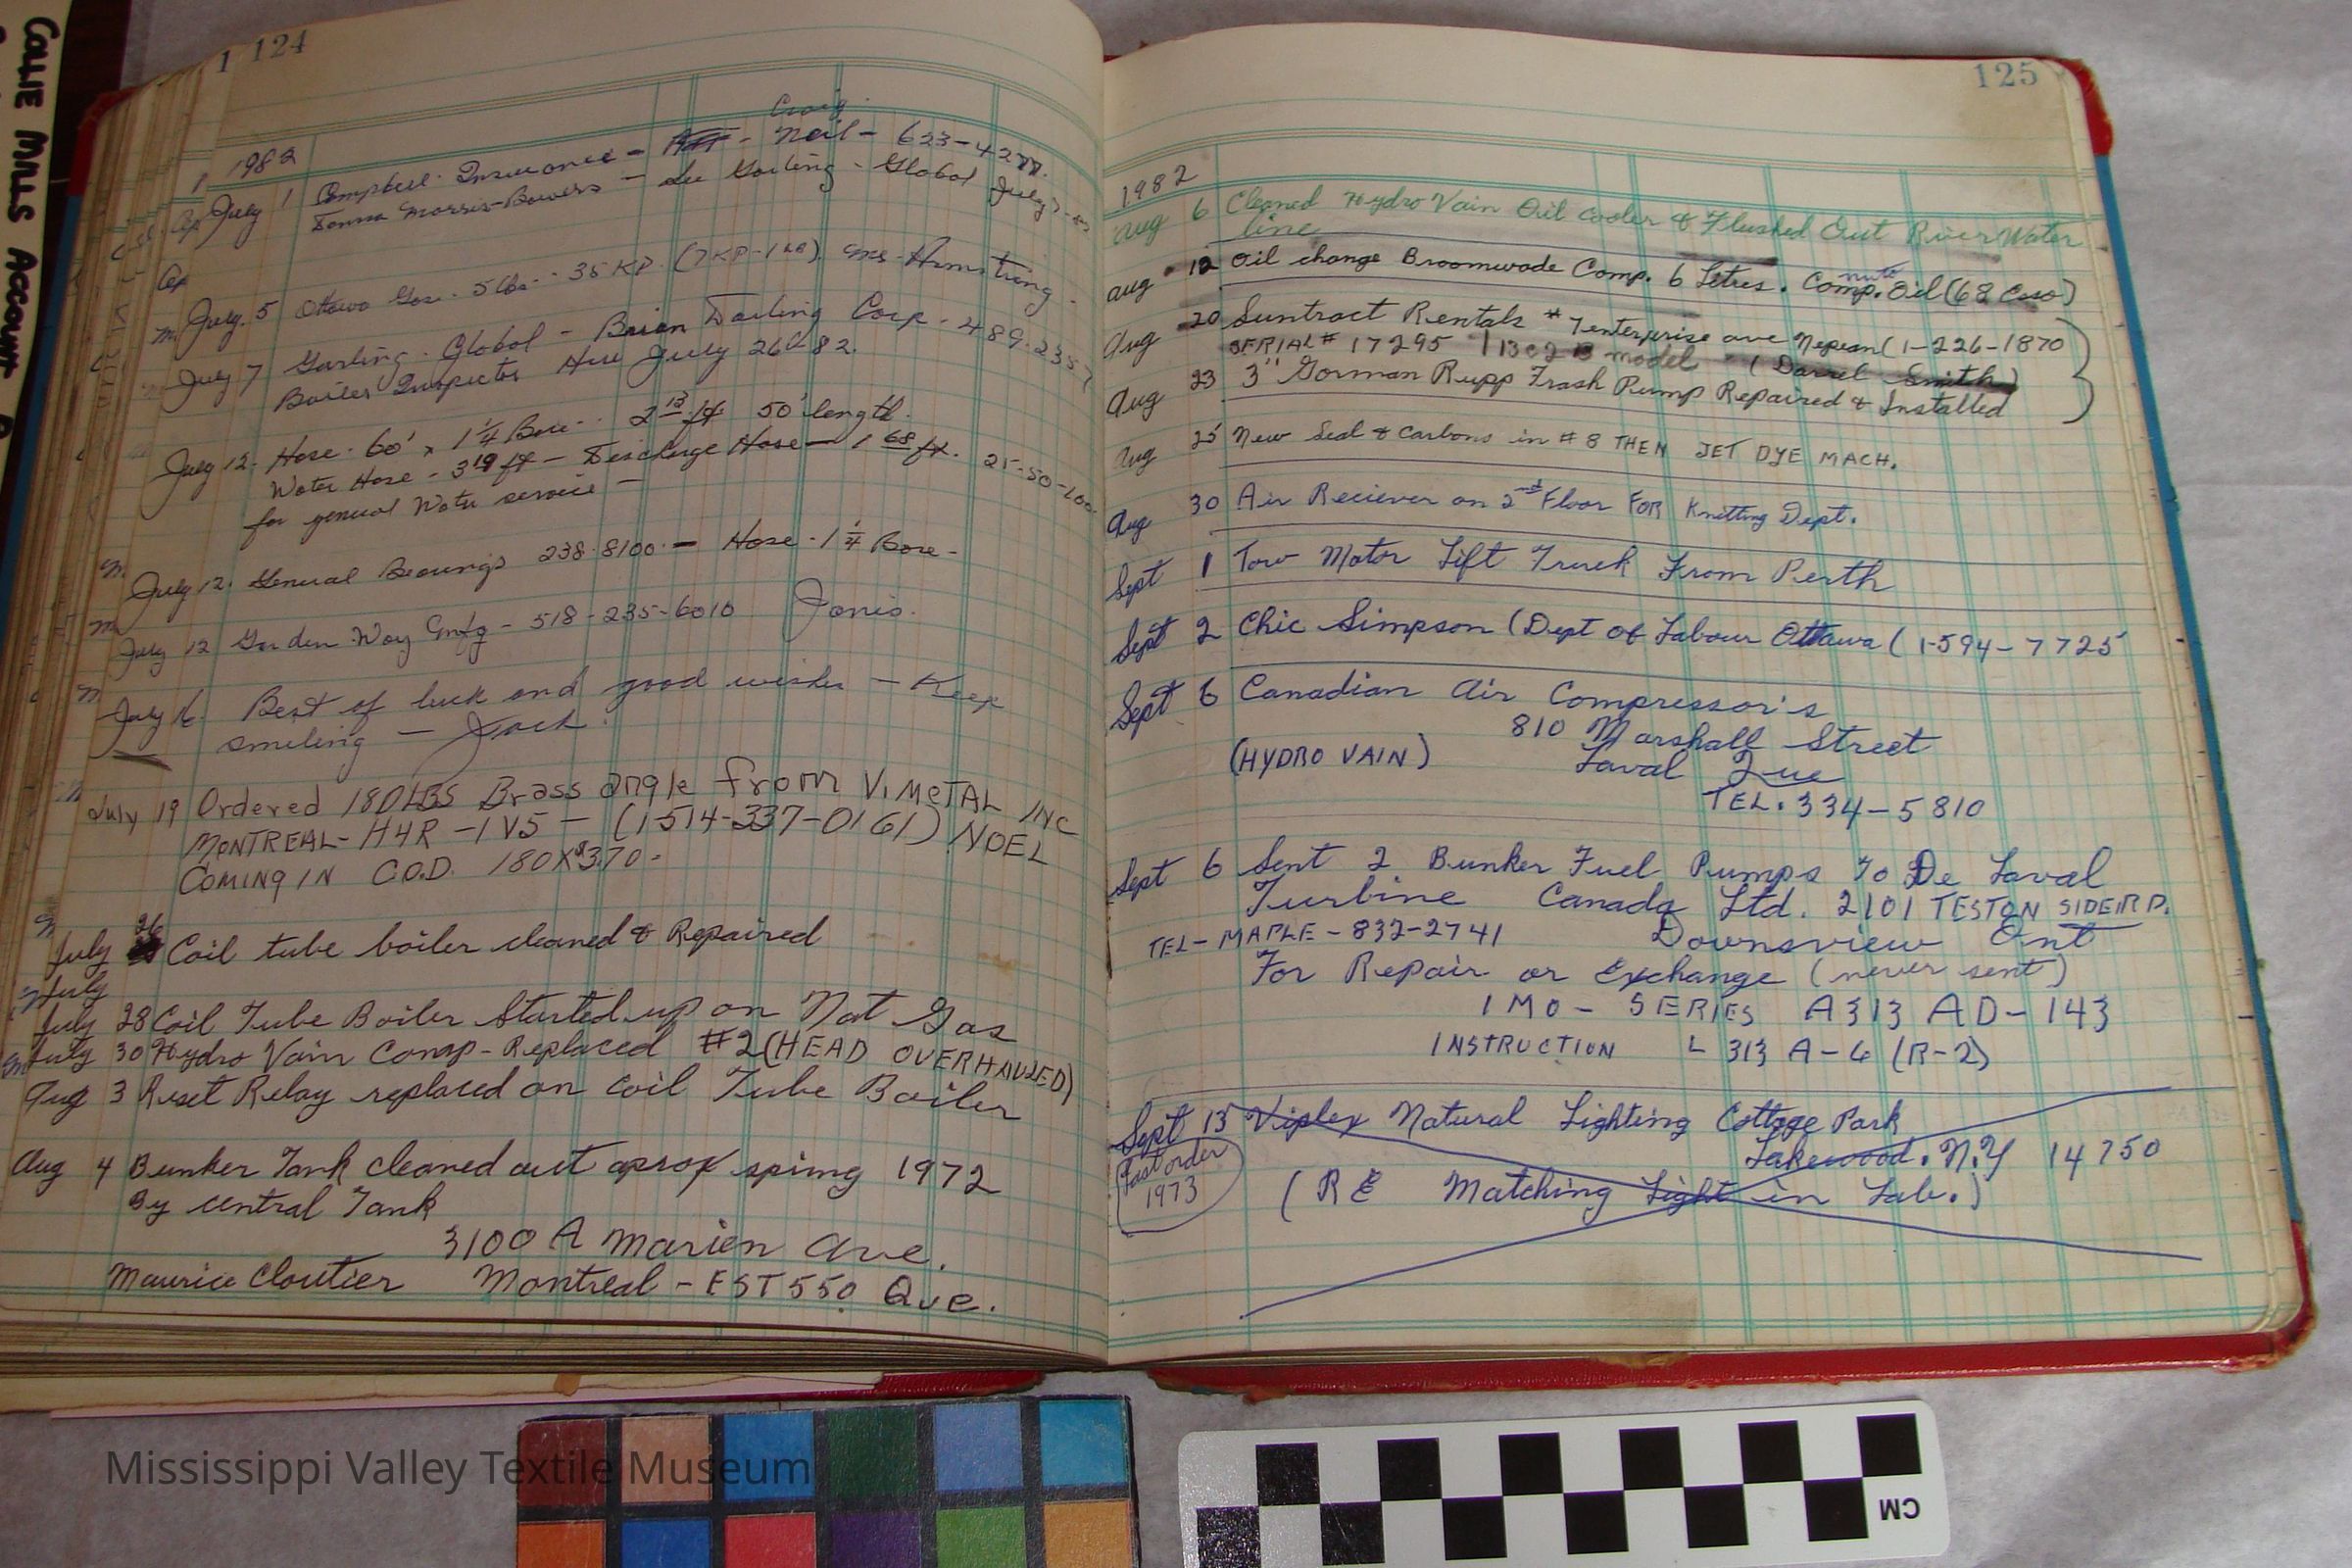 COLLIE MILLS ACCOUNT
124
1982
Craig
July 1 Campbell Insurance - Neil - 623-4277.
Donna Morris-Bowers - Lee Garling - Global July
July. 5 Ottawa Gas. 5 lbs - 35 KP. (7KP-1LB) Ms. Armstrong.
July 7 Garling. Global - Brian Darling Corp - 489-2357
Boiler Inspector Here July 26-82.
July 12. Hose. 60' x 1 1/4 Bore. 2 13 ft 50' length.
Water Hose - 3 19 ft - Discharge Hose - 1 68 ft. 25-50-100
for general Water service -
July 12. General Bearings 238-8100 - Hose - 1 1/4 Bore -
July 12 Garden Way Gmfg - 518-235-6010 Janis.
July 16 Best of luck and good wishes - Keep
smiling - Jack.
July 19 Ordered 180LBS Brass angle from V.METAL INC
MONTREAL - H4R - 1V5 - (1-514-337-0161) NOEL
COMING IN C.O.D. 180X$3.70-
July 26 Coil tube boiler cleaned & Repaired
July
July 28 Coil Tube Boiler Started up on Nat Gas
July 30 Hydro Vain Comp-Replaced #2 (HEAD OVERHAULED)
Aug 3 Reset Relay replaced on Coil Tube Boiler
Aug 4 Bunker Tank cleaned out aprox spimg 1972
By central Tank
3100 A Marien Ave.
Maurice Cloutier Montreal - EST 550 Que.
125
1982
Aug 6 Cleaned Hydro Vain Oil Cooler & Flushed Out River Water
line
Aug 12 Oil change Broomwade Comp. 6 Litres. Comp. Oil (68 Esso)
Aug 20 Suntract Rentals #7 enterprise ave Nepean (1-226-1870
SERIAL # 17295 model (Darrel Smith)
Aug 23 3" Gorman Rupp Trash Pump Repaired & Installed
Aug 25 New Seal & Carbons in #8 THEN JET DYE MACH.
Aug 30 Air Reciever on 2nd Floor FOR Knitting Dept.
Sept 1 Tow Motor Lift Truck From Perth
Sept 2 Chic Simpson (Dept of Labour Ottawa (1-594-7725
Sept 6 Canadian Air Compressor's
810 Marshall Street
(HYDRO VAIN) Laval Que
TEL. 334-5810
Sept 6 Sent 2 Bunker Fuel Pumps To De Laval
Turbine Canada Ltd. 2101 TESTON SIDEIRD.
TEL-MAPLE-832-2741 Downsview Ont
For Repair or Exchange (never sent)
IMO - SERIES A313 AD-143
INSTRUCTION L 313 A-6 (R-2)
Sept 13 Viplex Natural Lighting Cottage Park
Last order Lakewood. N.Y 14750
1973 (RE Matching Light in Lab.)
Mississippi Valley Textile Museum
CM